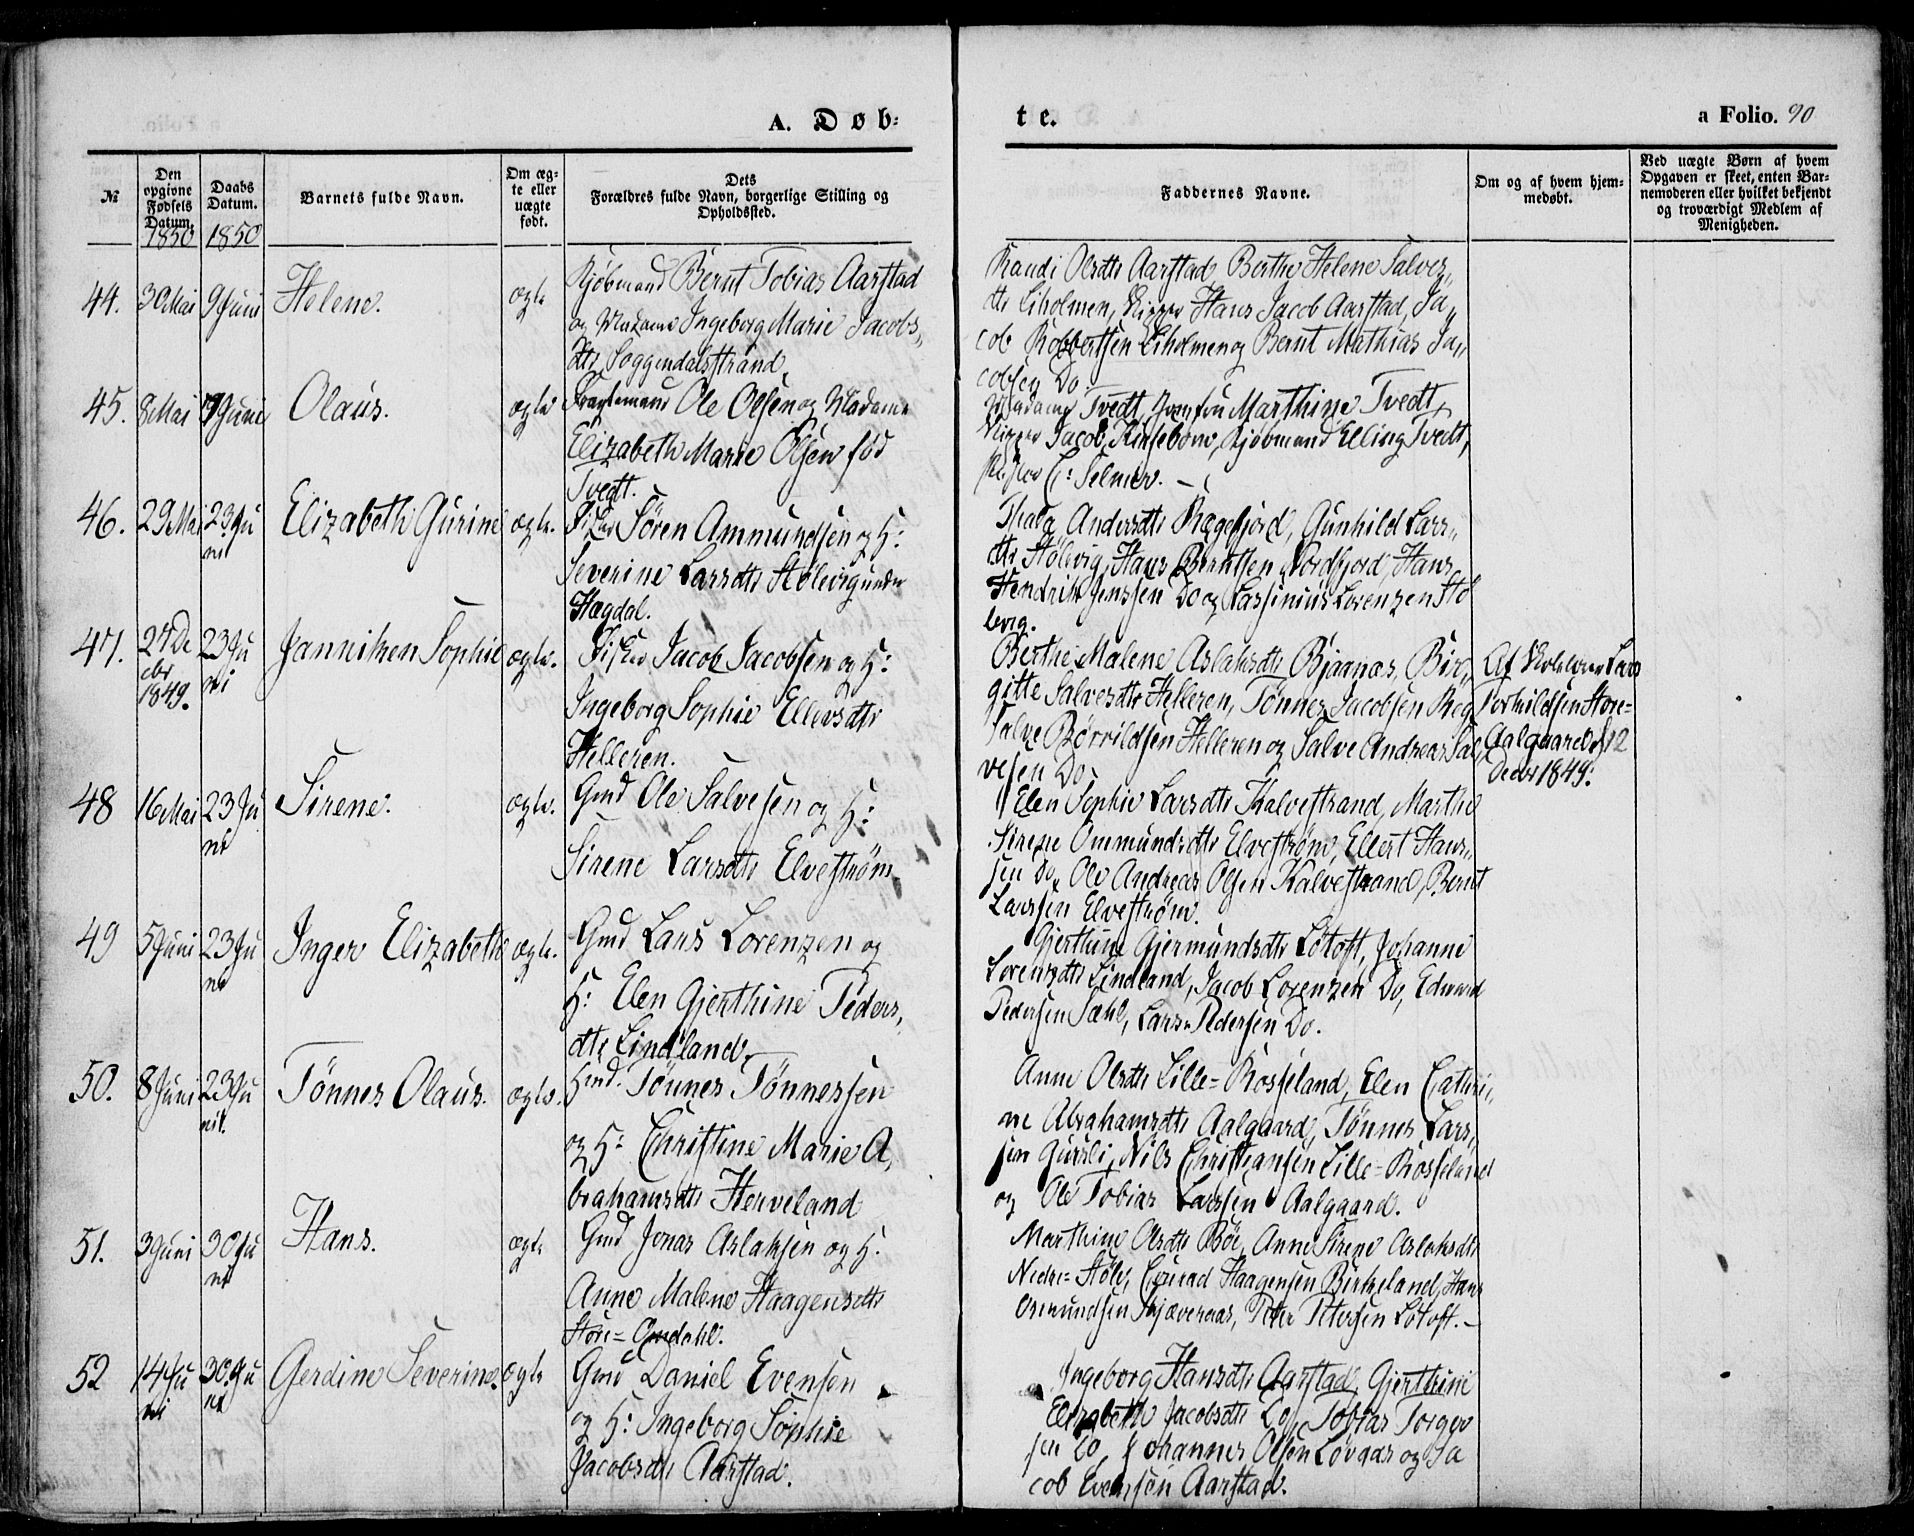 A. Døb-
te.
a Folio. 90
№
Den opgivne Fødsels Datum.
1850
Daabs Datum.
1850
Barnets fulde Navn.
Om ægte eller uægte født.
Dets Forældres fulde Navn, borgerlige Stilling og Opholdssted.
Faddernes Navne.
Om og af hvem hjemmedøbt.
Ved uægte Børn af hvem Opgaven er skeet, enten Barnemoderen eller hvilket bekjendt og troværdigt Medlem af Menigheden.
44. 30 Mai 9 Juni Helene. ægte
Kjøbmand Bernt Tobias Aarstad
og Madame Ingeborg Marie Jacobs„
dtr Soggendalsstrand.
Randi Olsdtr Aarstad, Berthe Helene Salves„
dtr Eiholmen, Skipper Hans Jacob Aarstad, Ja„
cob Robbertsen Eiholmen og Bernt Mathias Ja„
cobsen Do.
45. 8 Mai Juni Olaus. ægte
Ole Olsen og Madame
Elizabeth Marie Olsen fød
Tvedt.
Madame Tvedt, Jomfru Marthine Tvedt,
Skipper Jacob, Kjøbmand Elling Tvedt,
C: Selmer. —
46. 29 Mai 23 Ju
ni Elizabeth Gurine ægte.
Fisker Søren Ammundsen og H:
Severine Larsdtr Stølevig under
Hægdal.
Thala Andersdtr Rægefjord, Gunhild Lars„
dtr Stølevig, Hans Berntsen Nordfjord, Hans
Hendrik Jenssen Do og Lassinius Lorenzen Stø
levig.
47. 27 De
cbr
1849. 23 Ju
ni Janniken Sophie ægte.
Fisker Jacob Jacobsen og H:
Ingeborg Sophie Ellersdtr
Helleren.
Berthe Malene Aslaksdtr Bjørnæs, Bir„
gitte Salvesdtr Helleren, Tønnes Jacobsen Reg
Salve Børrildsen Helleren og Salve Andreas Sal„
vesen Do
Af Skolelærer Lars
Torkildsen Store=
Aalgaard
Decbr 1849.
48 16 Mai 23 Ju
ni Sirene. ægte.
Gmd Ole Salvesen og H:
Sirene Larsdtr Elvestrøm
Elen Sophie Larsdtr Kalvestrand, Marthe
Sirene Ommundsdtr Elvestrøm, Ellert Hans„
sen Do, Ole Andreas Olsen Kalvestrand, Bernt
Larssen Elvestrøm.
49 5 Juni 23 Ju
ni Inger Elizabeth ægte.
Gmd Laus Lorenzen og
H: Elen Gjerthine Peders„
dtr Lindland.
Gjerthine Gjermundsdtr Løtoft, Johanne
Lorenzdtr Lindland, Jacob Lorenzen Do, Edvard
Pedersen Sæhl, Lars Pedersen Do.
50. 8 Juni 23 Ju
ni. Tønnes Olaus. ægte.
Hmd. Tønnes Tønnessen
og H: Christine Marie A„
brahamsdtr Herveland
Anne Olsdtr Lille=Rosseland, Elen Cathri„
ne Abrahamsdtr Aalgaard, Tønnes Lars„
sen Gursli, Nils Christiansen Lille=Rosseland
og Ole Tobias Larssen Aalgaard.
51. 3 Juni 30 Ju
ni Hans. ægte
Gmd Jonas Aslaksen og H.
Anne Malene Haagensdtr
Store=Omdahl.
Marthine Olsdtr Bøe, Anne Sirene Aslaksdtr
Nedre=Støle, Conrad Haagensen Birkeland, Hans
Osmundsen Skjæveraas, Peter Petersen Løtoft. —
52 14 Ju
ni 30 Ju
ni Gerdine Severine. ægte
Gmd Daniel Evensen
og H: Ingeborg Sophie
Jacobsdtr Aarstad.
Ingeborg Hansdtr Aarstad, Gjerthine
Elizabeth Jacobsdtr Do, Tobias Torger
sen Do, Johannes Olsen Løvaas og Ja
cob Evensen Aarstad.